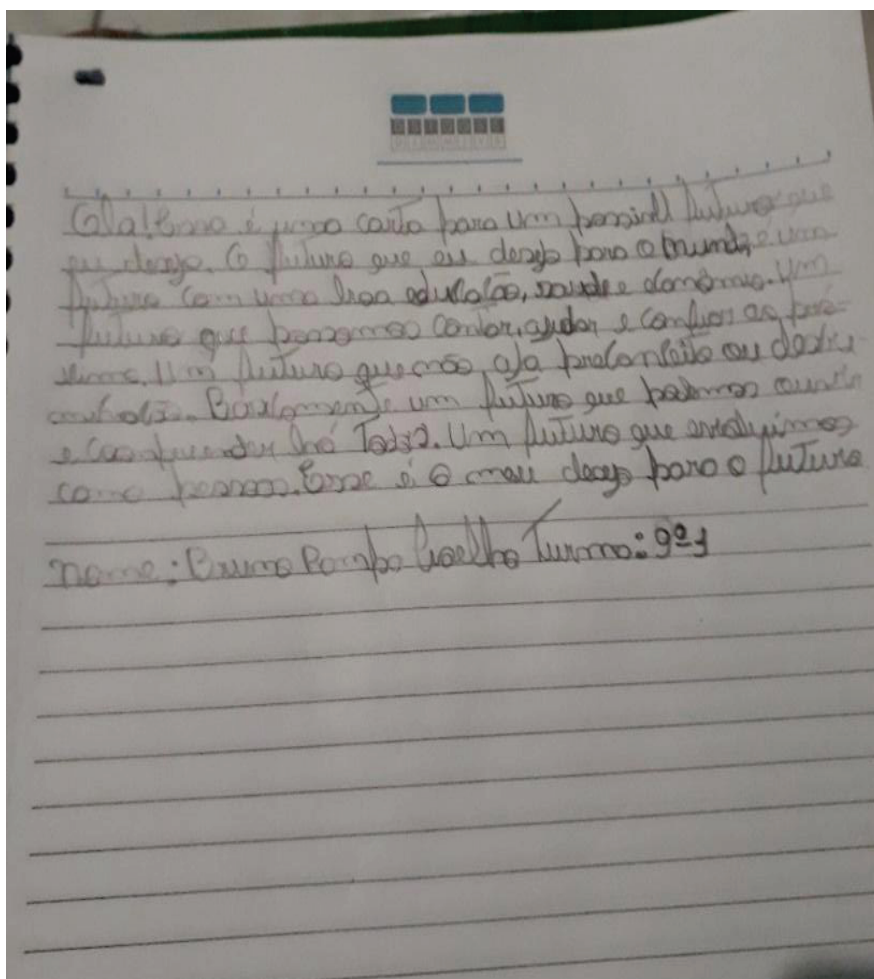 Ola! Essa é uma carta para um possivel futuro que
eu desejo. O futuro que eu desejo para o mundo, e um
futuro com uma boa educação, saude e
futuro que possamos contar, ajudar e confiar ao pró-
ximo. Um futuro que não aja preconceito ou
um futuro que podemos ouvir
e Todos. Um futuro que evoluimos
como pessoas. Esse é o meu desejo para o futuro
nome: Bruno Pompo Coelho Turma: 9º1